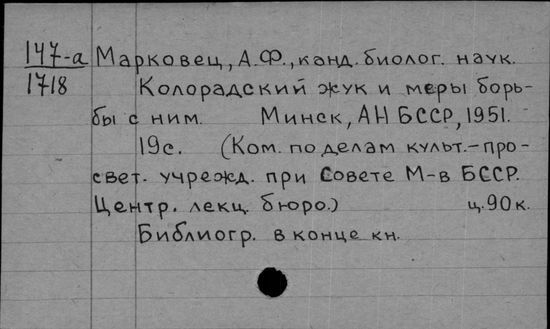 147-а Марковец, А.Ф., канд. биолог. наук.
1718 Колорадский жук и меры борь-
бы с ним. Минск, АН БССР, 1951.
19с. (Ком. по делам культ.-про-
свет. учрежд. при Совете М-в БССР.
Центр. лекц. бюро.) ц.90к.
Библиогр. в конце кн.